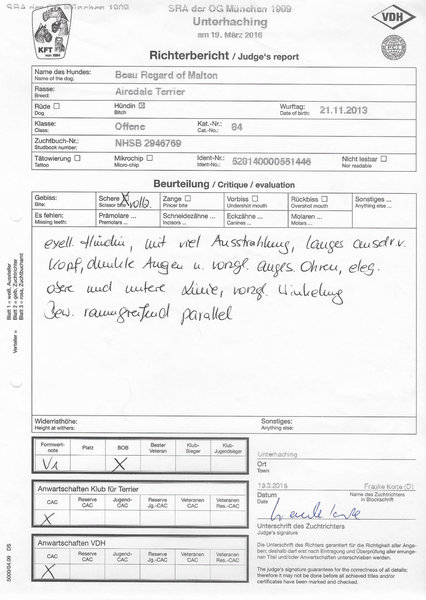 SRA der OG München 1909
Unterhaching
am 19. März 2016
KFT
von 1894
VDH
FCI
Richterbericht / Judge's report
Name des Hundes: Beau Regard of Malton
Name of the dog:
Rasse: Airedale Terrier
Breed:
Rüde ☐ Hündin ☒ Wurftag: 21.11.2013
Dog Bitch Date of birth:
Klasse: Offene Kat.-Nr.: 84
Class: Cat.-No.:
Zuchtbuch-Nr.: NHSB 2946769
Studbook number:
Tätowierung ☐ Mikrochip ☐ Ident-Nr.: 528140000551446 Nicht lesbar ☐
Tattoo Micro-chip Ident-No.: Not readable
Beurteilung / Critique / evaluation
Gebiss: Schere X vollz. Zange ☐ Vorbiss ☐ Rückbiss ☐ Sonstiges ...
Bite: Scissor bite Pincer bite Undershot mouth Overshot mouth Anything else ...
Es fehlen: Prämolare ... Schneidezähne ... Eckzähne ... Molaren ...
Missing teeth: Premolars ... Incisors ... Canines ... Molars ...
exell. Hündin, mit viel Ausstrahlung, langes ausdr.v.
Kopf, dunkle Augen u. vorzgl. anges. Ohren, eleg.
obere und untere Linie, vorzgl. Winkelung
Bew. raumgreifend parallel
Blatt 1 = weiß, Aussteller
Blatt 2 = gelb, Zuchtrichter
Blatt 3 = rosa, Zuchtbuchamt
Verteiler =
5000/04.09 DS
Widerristhöhe: Sonstiges:
Height at withers: Anything else:
Formwertnote Platz BOB Bester Veteran Klub-Sieger Klub-Jugendsieger
V1 X
Anwartschaften Klub für Terrier
CAC Reserve CAC Jugend-CAC Reserve Jg.-CAC Veteranen-CAC Reserve Vet.-CAC
X
Anwartschaften VDH
CAC Reserve CAC Jugend-CAC Reserve Jg.-CAC Veteranen-CAC Reserve Vet.-CAC
X
Unterhaching
Ort
Town
19.3.2016 Frauke Korte (D)
Datum Name des Zuchtrichters
Date in Blockschrift
Unterschrift des Zuchtrichters
Judge's signature
Der Zuchtrichter garantiert für die Richtigkeit aller Angaben; deshalb darf erst nach Eintragung und Überprüfung aller errungenen Titel und/oder Anwartschaften unterschrieben werden.
The judge's signature guarantees for the correctness of all details; therefore it may not be done before all achieved titles and/or certificates have been marked and checked.